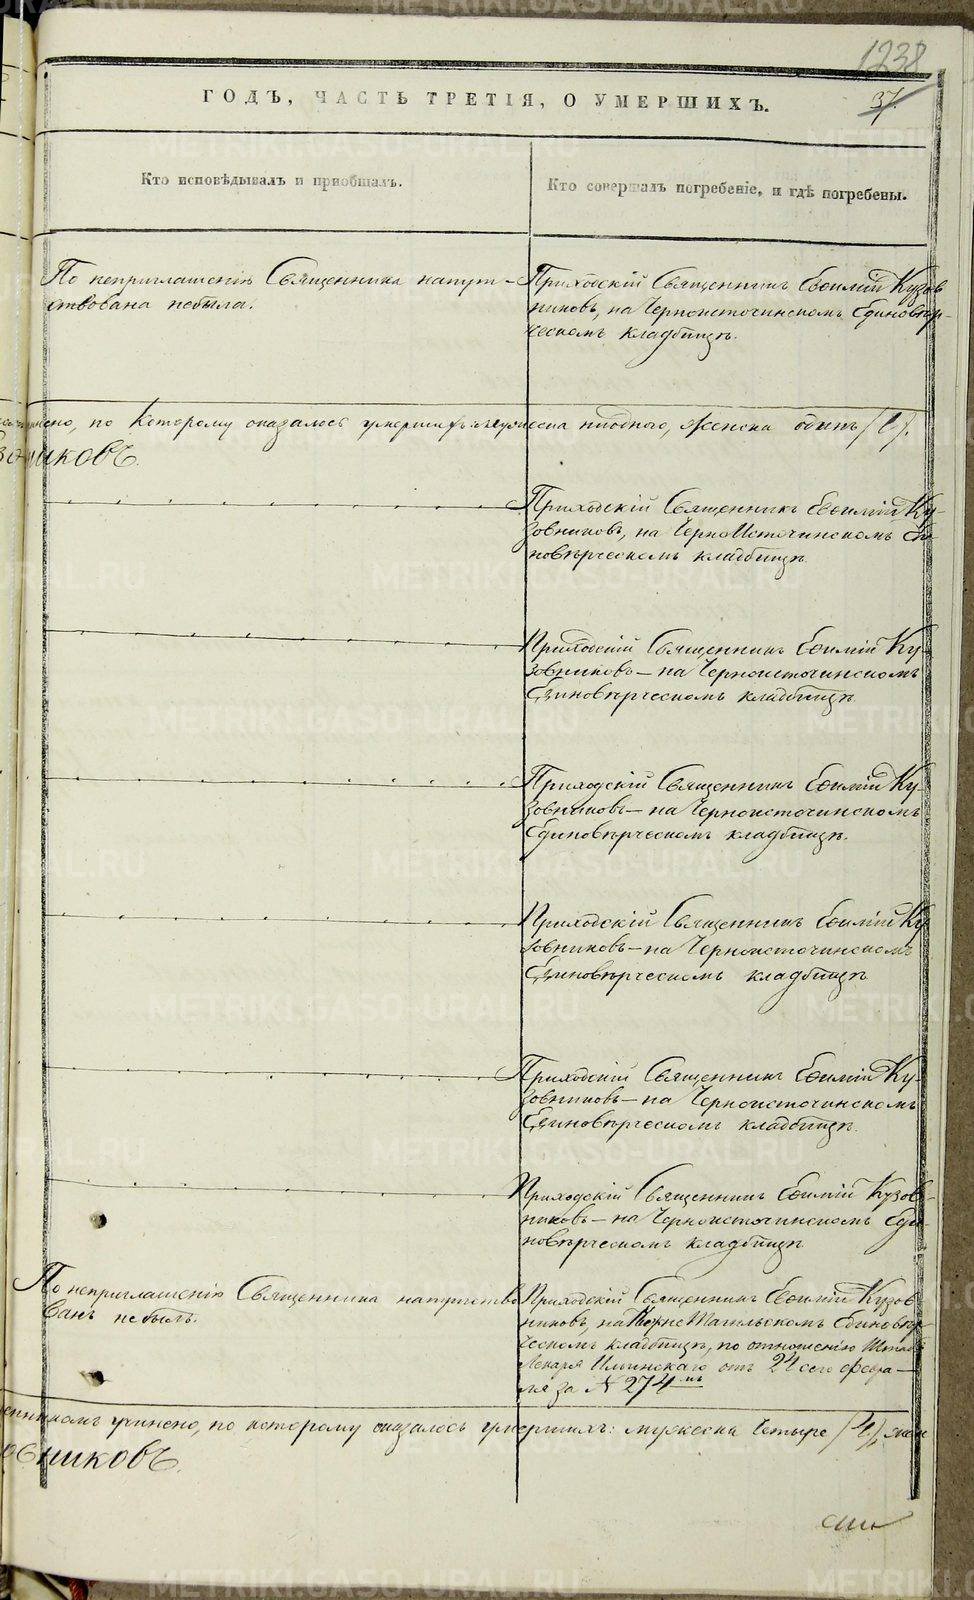 1238
37.
ГОДЪ, ЧАСТЬ ТРЕТІЯ, О УМЕРШИХЪ.
Кто исповѣдывалъ и пріобщалъ.
Кто совершалъ погребеніе, и гдѣ погребены.
По неприглашенію Священника напут-
ствована небыла.
Приходскій Священникъ Евѳимій Кузов
никовъ, на Черноисточинскомъ Единовѣр-
ческомъ кладбищѣ.
по которому оказалось умершихъ: мужеска ниодного, женска одинъ /1/.
зовниковъ.
Приходскій Священникъ Евѳимій Ку-
зовниковъ, на Черноисточинскомъ Еди
новѣрческомъ кладбищѣ.
Приходскій Священникъ Евѳимій Ку-
зовниковъ – на Черноисточинскомъ
Единовѣрческомъ кладбищѣ.
Приходскій Священникъ Евѳимій Ку-
зовниковъ – на Черноисточинскомъ
Единовѣрческомъ кладбищѣ.
Приходскій Священникъ Евѳимій Ку
зовниковъ – на Черноисточинскомъ
Единовѣрческомъ кладбищѣ
Приходскій Священникъ Евѳимій Ку-
зовниковъ – на Черноисточинскомъ
Единовѣрческомъ кладбищѣ.
Приходскій Священникъ Евѳимій Кузов-
никовъ – на Черноисточинскомъ Еди-
новѣрческомъ кладбищѣ
По неприглашенію Священника напутство
ванъ небылъ.
Приходскій Священникъ Евѳимій Кузов
никовъ, на Нижне Тагильскомъ Единовѣр-
ческомъ кладбищѣ, по отношенію
Лекаря Илинскаго отъ 24 сего Февра-
ля за № 274мъ
учинено, по которому оказалось умершихъ: мужеска четыре /4/, жен
овниковъ.
METRIKI.GASO-URAL.RU